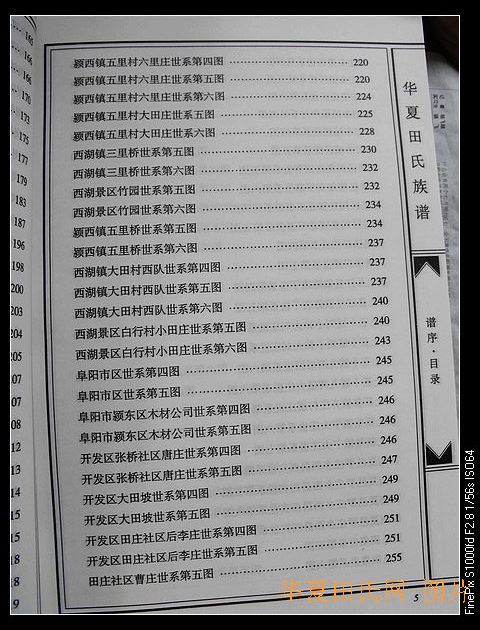 颍西镇五里村六里庄世系第四图 220
颍西镇五里村六里庄世系第五图 220
颍西镇五里村六里庄世系第六图 224
颍西镇五里村大田庄世系五图 225
颍西镇五里村大田庄世系六图 228
西湖镇三里桥世系第五图 230
西湖镇三里桥世系第六图 232
西湖景区竹园世系第五图 232
西湖景区竹园世系第六图 234
颍西镇五里桥世系第五图 234
颍西镇五里桥世系第六图 237
西湖镇大田村西队世系第四图 237
西湖镇大田村西队世系第五图 237
西湖镇大田村西队世系第六图 240
西湖景区白行村小田庄世系第五图 240
西湖景区白行村小田庄世系第六图 243
阜阳市区世系第四图 245
阜阳市区世系第五图 245
阜阳市颍东区木材公司世系第四图 246
阜阳市颍东区木材公司世系第五图 246
开发区张桥社区唐庄世系第四图 246
开发区张桥社区唐庄世系第五图 247
开发区大田坡世系第四图 249
开发区大田坡世系第五图 249
开发区田庄社区后李庄世系第四图 251
开发区田庄社区后李庄世系第五图 251
田庄社区曹庄世系第五图 255
华夏田氏族谱
谱序·目录
5
165
166
166
170
173
175
177
179
183
187
196
198
200
203
204
205
207
华夏田氏网 图片
FinePix S1000fd F2.8 1/56s ISO64